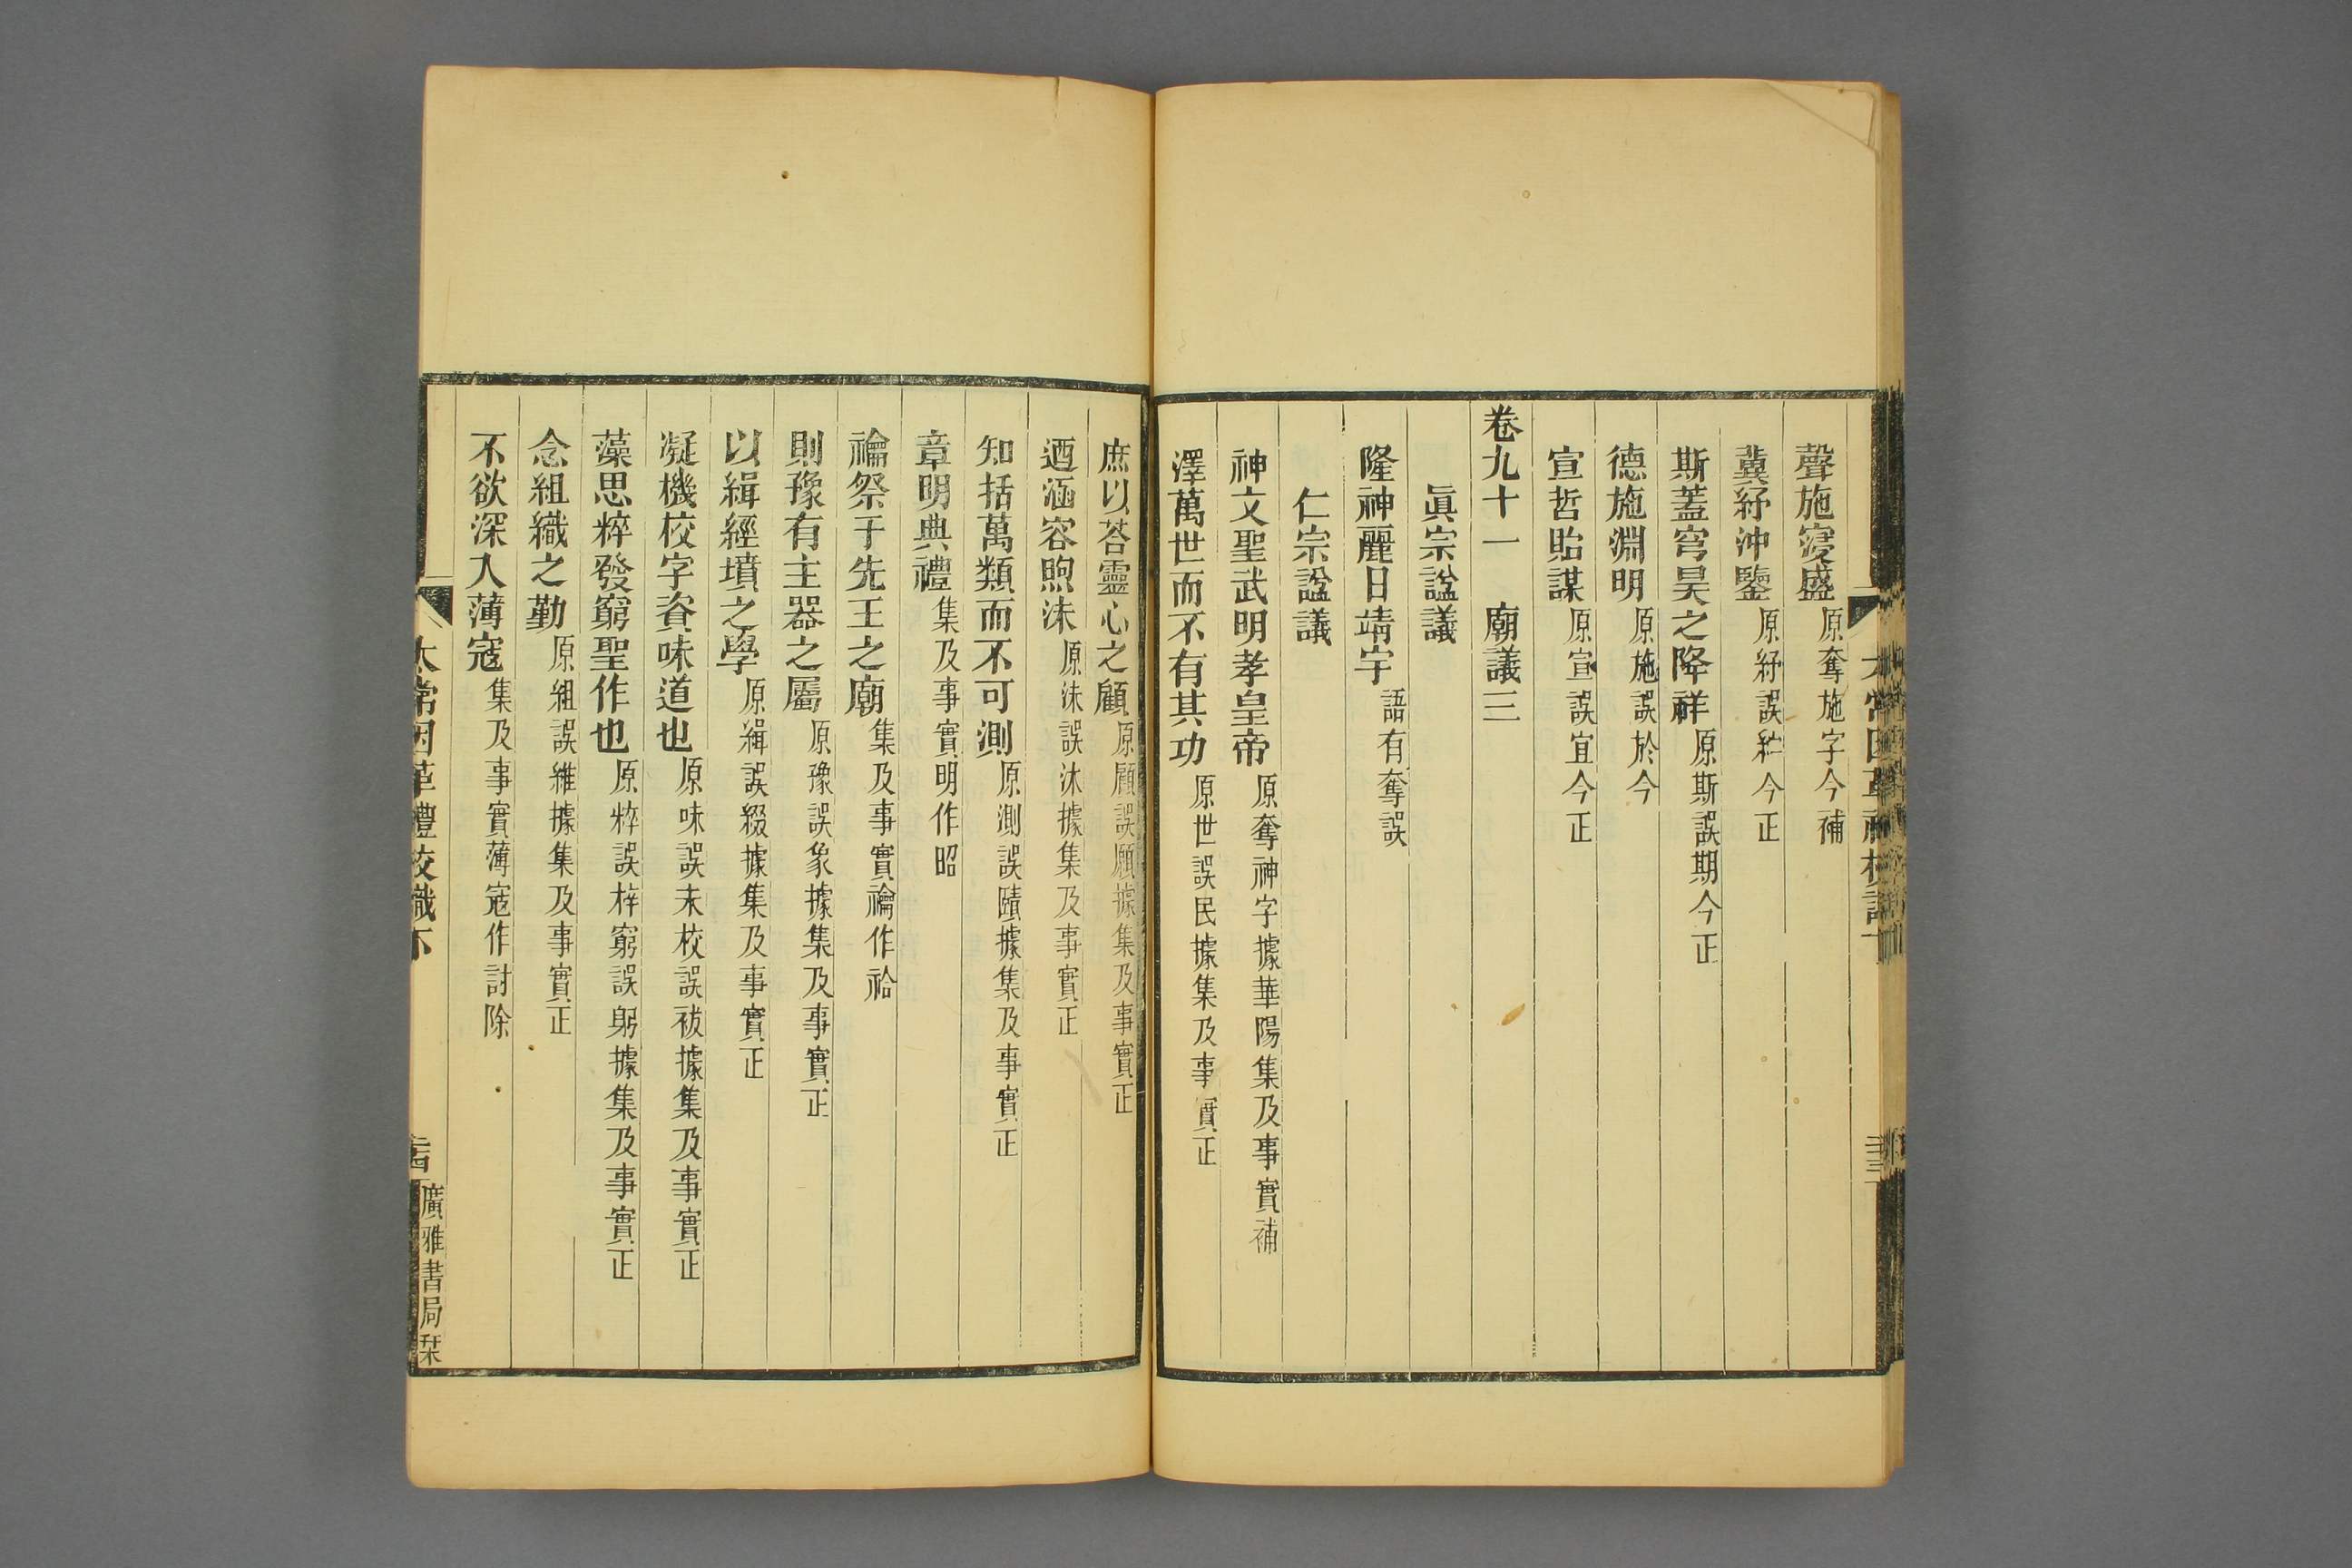 聲施寖盛原奪施字今補
冀紓沖鑒原紓誤紵今正
斯蓋穹昊之降祥原斯誤期今正
德施淵明原施誤於今
宣哲貽謀原宣誤宜今正
卷九十一 廟議三
眞宗諡議
隆神麗日靖宇語有奪誤
仁宗諡議
神文聖武明孝皇帝原奪神字據華陽集及事實補
澤萬世而不有其功原世誤民據集及事實正
庶以荅靈心之顧原顧誤願據集及事實正
迺涵容煦沬原沬誤沐據集及事實正
知括萬類而不可測原測誤賾據集及事實正
章明典禮集及事實明作昭
禴祭于先王之廟集及事實禴作祫
則豫有主器之屬原豫誤象據集及事實正
以緝經墳之學原緝誤綴據集及事實正
凝機校字資味道也原味誤未校誤祓據集及事實正
藻思粹發窮聖作也原粹誤梓窮誤躬據集及事實正
念組織之勤原組誤維據集及事實正
不欲深入薄寇集及事實薄寇作討除
太常因革禮校識下
廣雅書局栞